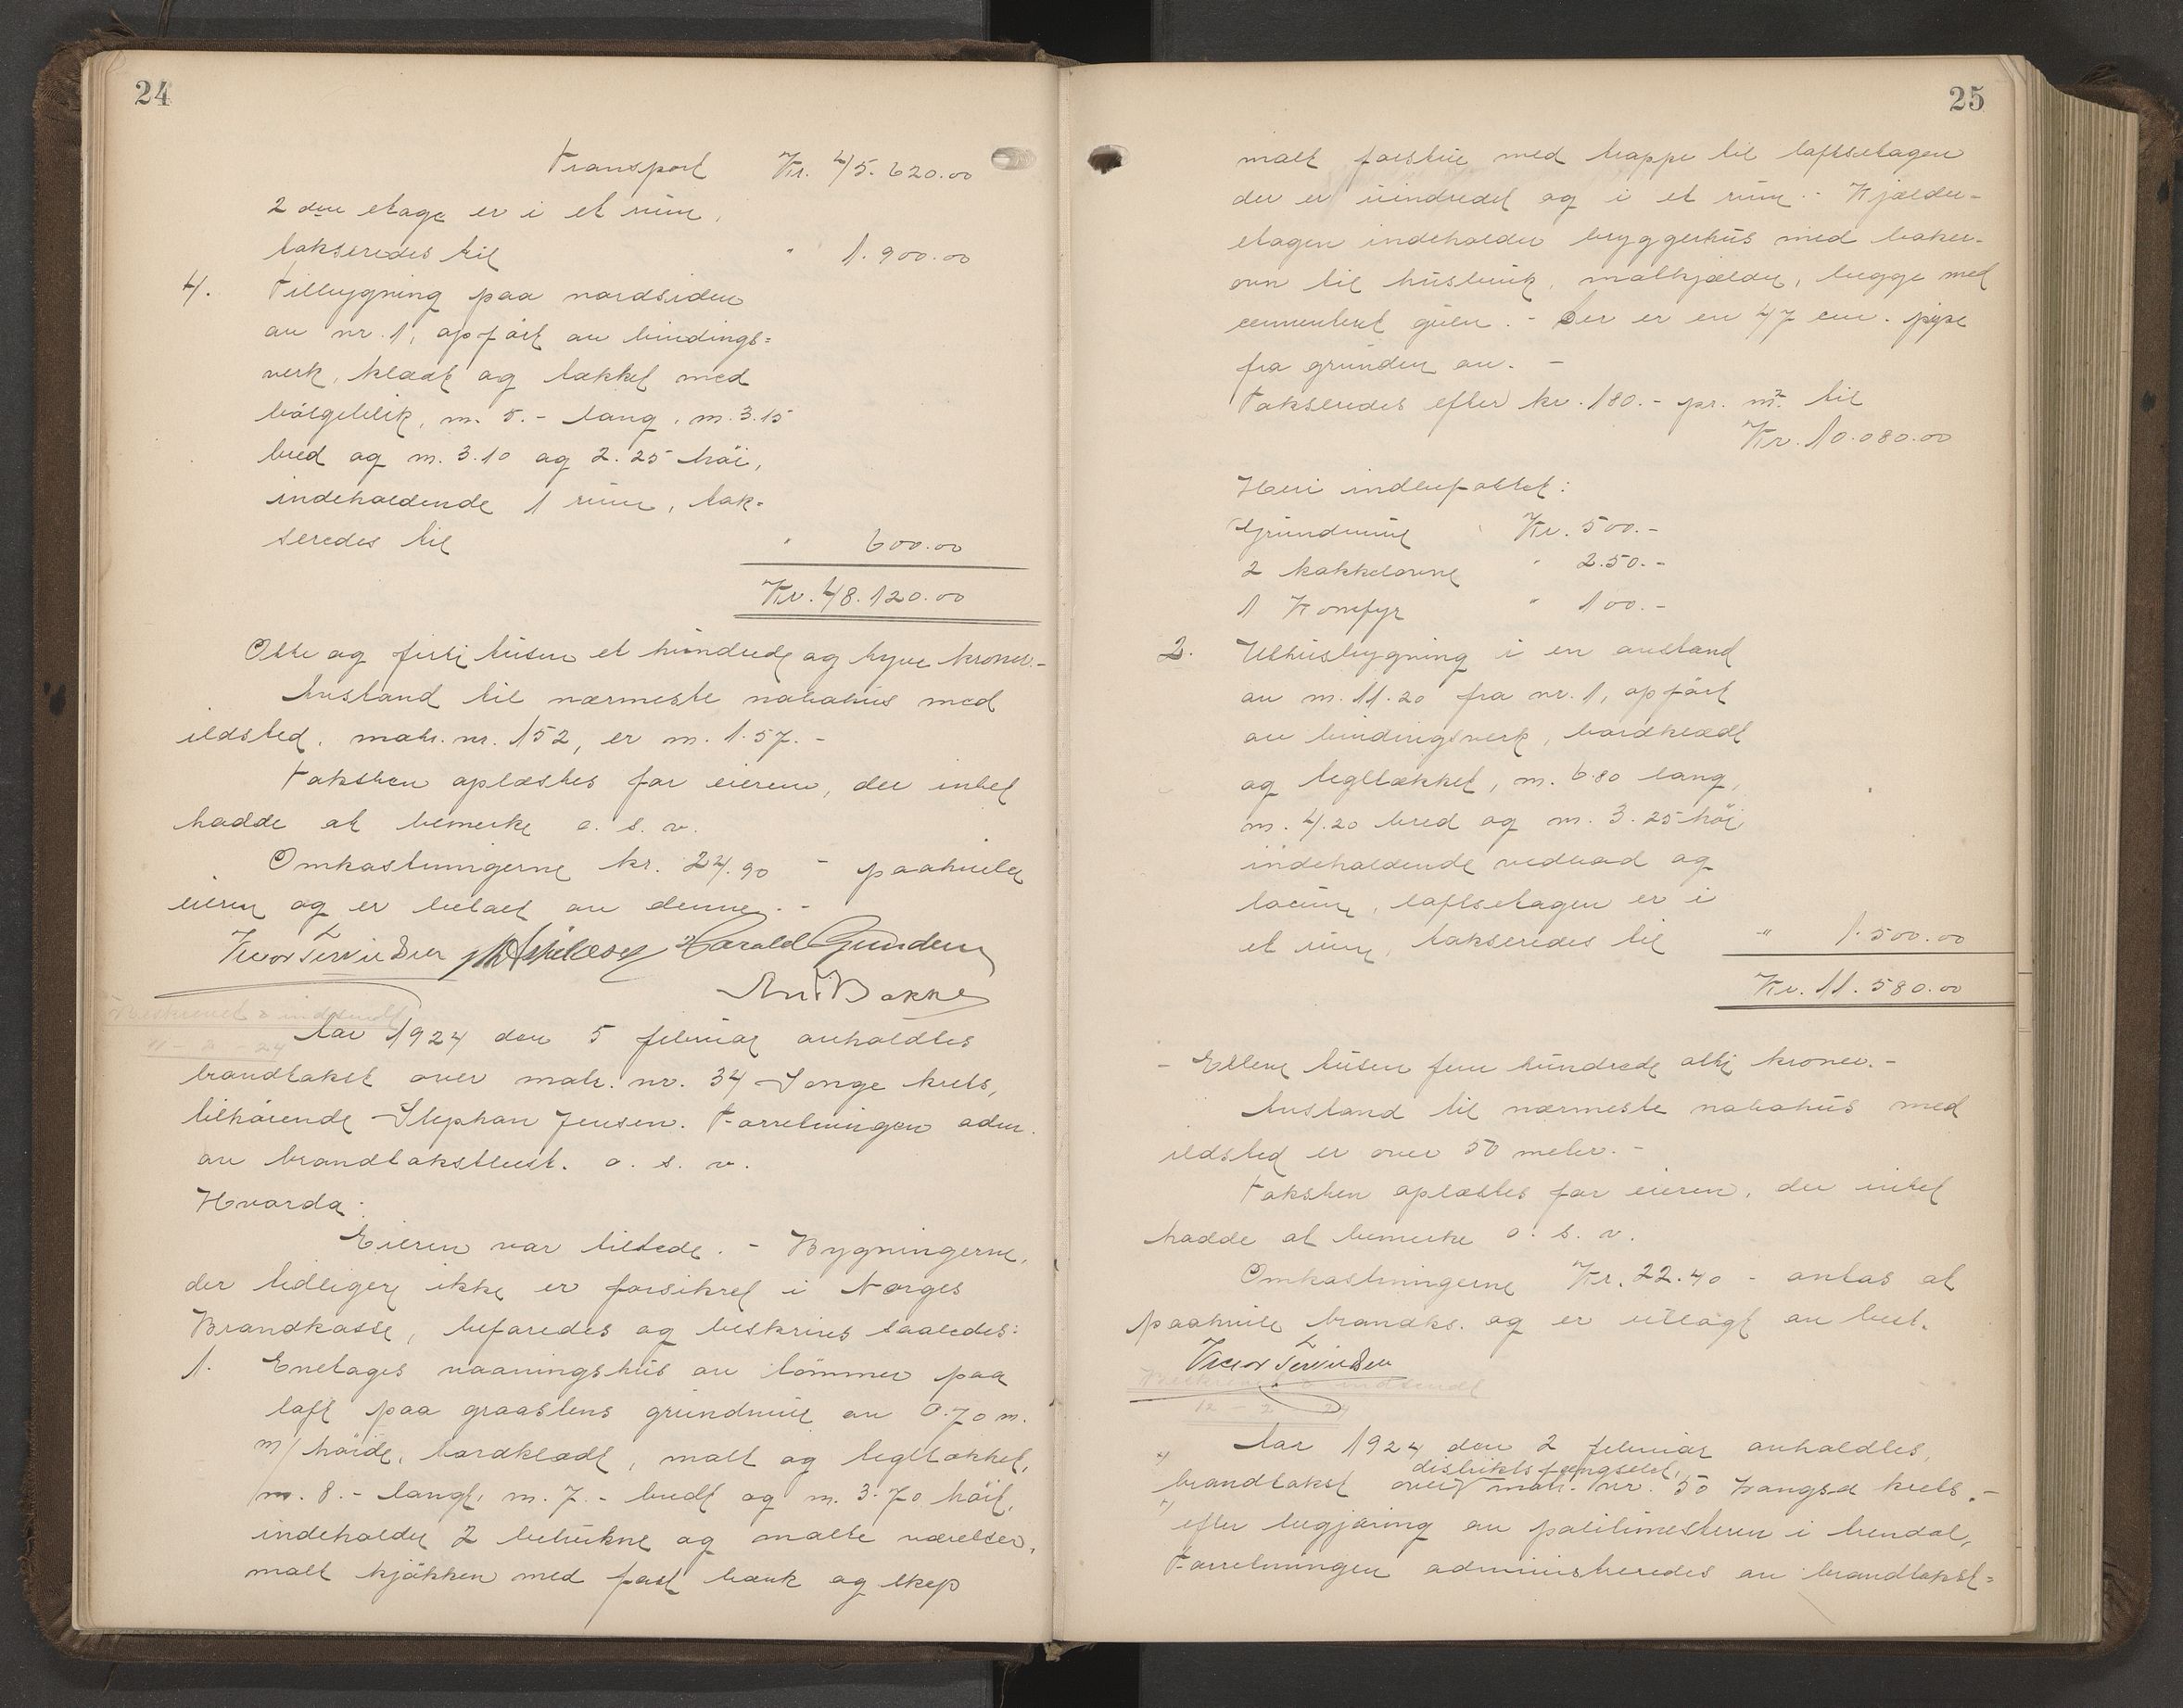 24
Transport Kr. 45.620.00
2 den etage er i et rum,
takseredes til " 1.900.00
4. Tilbygning paa nordsiden
av nr. 1, opført av bindings=
verk, klædt og tækket med
bölgeblik, m. 5.- lang, m. 3.15
bred og m. 3.10 og 2.25 höi,
indeholdende 1 rum, tak=
seredes til " 600.00
Kr. 48.120.00
Otte og firti tusen et hundrede og tyve kroner.-
Avstand til nærmeste nabohus med
ildsted, matr. nr. 152, er m. 1.57.-
Taksten oplæstes for eieren, der intet
hadde at bemerke o. s. v.
Omkostningerne kr. 24.90 - paahviler
eieren og er betalt av denne.-
Harald Gundersen
Ant. Bakke
Beskrevet & indsendt
11 - 2 - 24
Aar 1924 den 5 februar avholdtes
brandtakst over matr. nr. 34 Songe krets,
tilhørende Stephan Jensen. Forretningen adm.
av brandtakstbest. o. s. v.
Hvorda:
Eieren var tilstede. - Bygningerne,
der tidligere ikke er forsikret i Norges
Brandkasse, befaredes og beskrives saaledes:
1. Enetages vaaningshus av tömmer paa
loft paa graastens grundmur av 0.70 m.
m/ höide, bordklædt, malt og teglstækket,
m. 8.- langt, m. 7.- bredt og m. 3.70 höit,
indeholder 2 betrukne og malte værelser,
malt kjökken med fast bænk og skap
25
malt forstue med trappe til loftsetagen
der er uindredet og i et rum.- Kjælder-
etagen indeholder bryggerhus med baker-
ovn til husbruk, matkjælder, begge med
cementert gulv.- Der er en 47 cm. pipe
fra grunden av. -
Takseredes efter kr. 180.- pr. m². til
Kr. 10.080.00
Heri indbefattet:
Grundmur Kr. 500.-
2 kakkelovne " 250.-
1 Komfyr " 100.-
2. Uthusbygning i en avstand
av m. 11.20 fra nr. 1, opført
av bindingsverk, bordklædt
og teglstækket, m. 6.80 lang,
m. 4.20 bred og m. 3.25 höi
indeholdende vedbod og
locum, loftsetagen er i
et rum, takseredes til " 1.500.00
Kr. 11.580.00
- Elleve tusen fem hundrede otti kroner.-
Avstand til nærmeste nabohus med
ildsted er over 50 meter.-
Taksten oplæstes for eieren, der intet
hadde at bemerke o. s. v.
Omkostningerne Kr. 22.40 - antas at
paahvile brandks. og er utlagt av best.
Beskrevet & indsendt
12 - 2 24
Aar 1924 den 2 februar avholdtes,
distriktsfængselet,
brandtakst over matr. nr. 50 krets.-
efter begjæring av politimesteren i Arendal,
Forretningen administreredes av brandtakst=